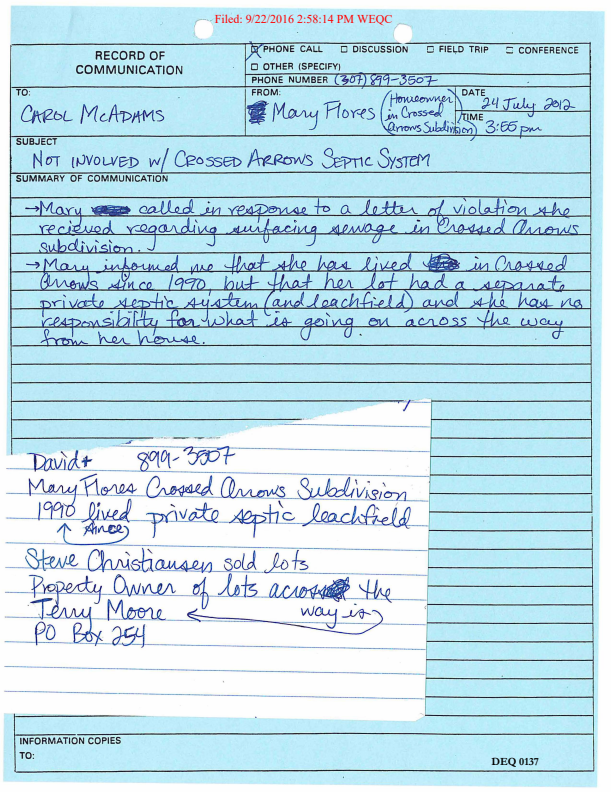 Filed: 9/22/2016 2:58:14 PM WEQC
RECORD OF
COMMUNICATION
PHONE CALL DISCUSSION FIELD TRIP CONFERENCE
OTHER (SPECIFY)
PHONE NUMBER (307) 899-3507
TO:
CAROL McADAMS
FROM:
Mary Flores (Homeowner
in Crossed
Arrows Subdivision)
DATE
24 July 2012
TIME
3:55 pm
SUBJECT
NOT INVOLVED W/ CROSSED ARROWS SEPTIC SYSTEM
SUMMARY OF COMMUNICATION
→Mary called in response to a letter of violation she
recieved regarding surfacing sewage in Crossed Arrows
subdivision.
→Mary informed me that she has lived in Crossed
Arrows since 1990, but that her lot had a separate
private septic system (and leachfield) and she has no
responsibility for what is going on across the way
from her house.
David + 899-3507
Mary Flores Crossed Arrows Subdivision
1990 lived private septic leachfield
↑ since
Steve Christiansen sold lots
Property Owner of lots across the
Terry Moore ← way is
PO Box 254
INFORMATION COPIES
TO:
DEQ 0137